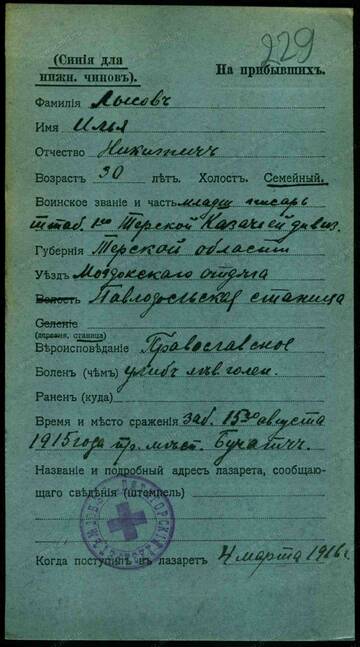 229
(Синія для
нижн. чиновъ).
На прибывшихъ.
Фамилія Лысовъ
Имя Илья
Отчество Никитичъ
Возрастъ 30 лѣтъ. Холост. Семейный.
Воинское званіе и часть младш. писарь
штаб. Терской Казачьей дивиз.
Губернія Терской области
Уѣздъ Моздокскаго отдѣла
Волость Павлодольская станица
Селеніе
(деревня, станица)
Вѣроисповѣданіе Православное
Болен (чѣм) ушибъ лѣв голен.
Раненъ (куда)
Время и мѣсто сраженія заб. 15го августа
1915 года пр. мѣст. Бучачъ.
Названіе и подробный адресъ лазарета, сообщаю-
щаго свѣдѣнія (штемпель)
Когда поступилъ въ лазаретъ 4 марта 1916 г.